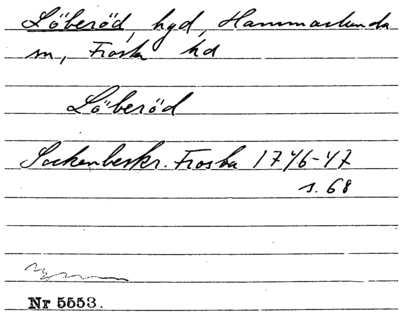 Löberöd, hgd, Hammarlunda
sn, Frosta hd
Löberöd
Sockenbeskr. Frosta 1746-47
s. 68
Nr 5553.